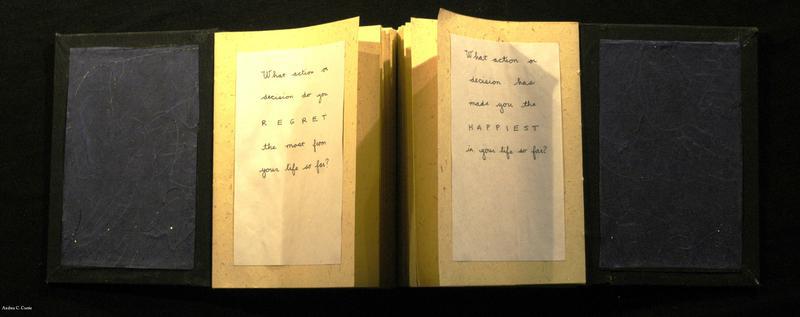 What action or
decision do you
REGRET
the most from
your life so far?
What action or
decision has
made you the
HAPPIEST
in your life so far?
Andrea C. Currie